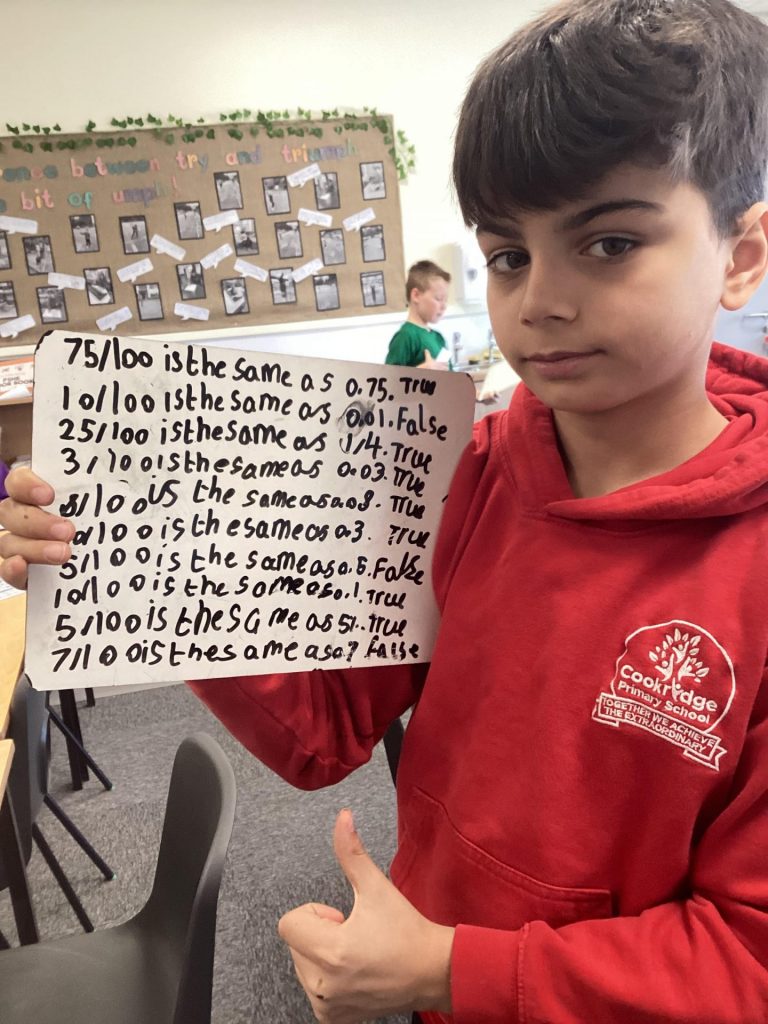 ence between try and triumph
e bit of umph!
75/100 is the same as 0.75. True
10/100 is the same as 0.01. False
25/100 is the same as 1/4. True
3/100 is the same as 0.03. True
8/100 is the same as 0.08. True
/100 is the same as 0.3. True
5/100 is the same as 0.5. False
10/100 is the same as 0.1. True
5/100 is the same as 5%. True
7/100 is the same as 0.7 False
Cookridge
Primary School
TOGETHER WE ACHIEVE
THE EXTRAORDINARY